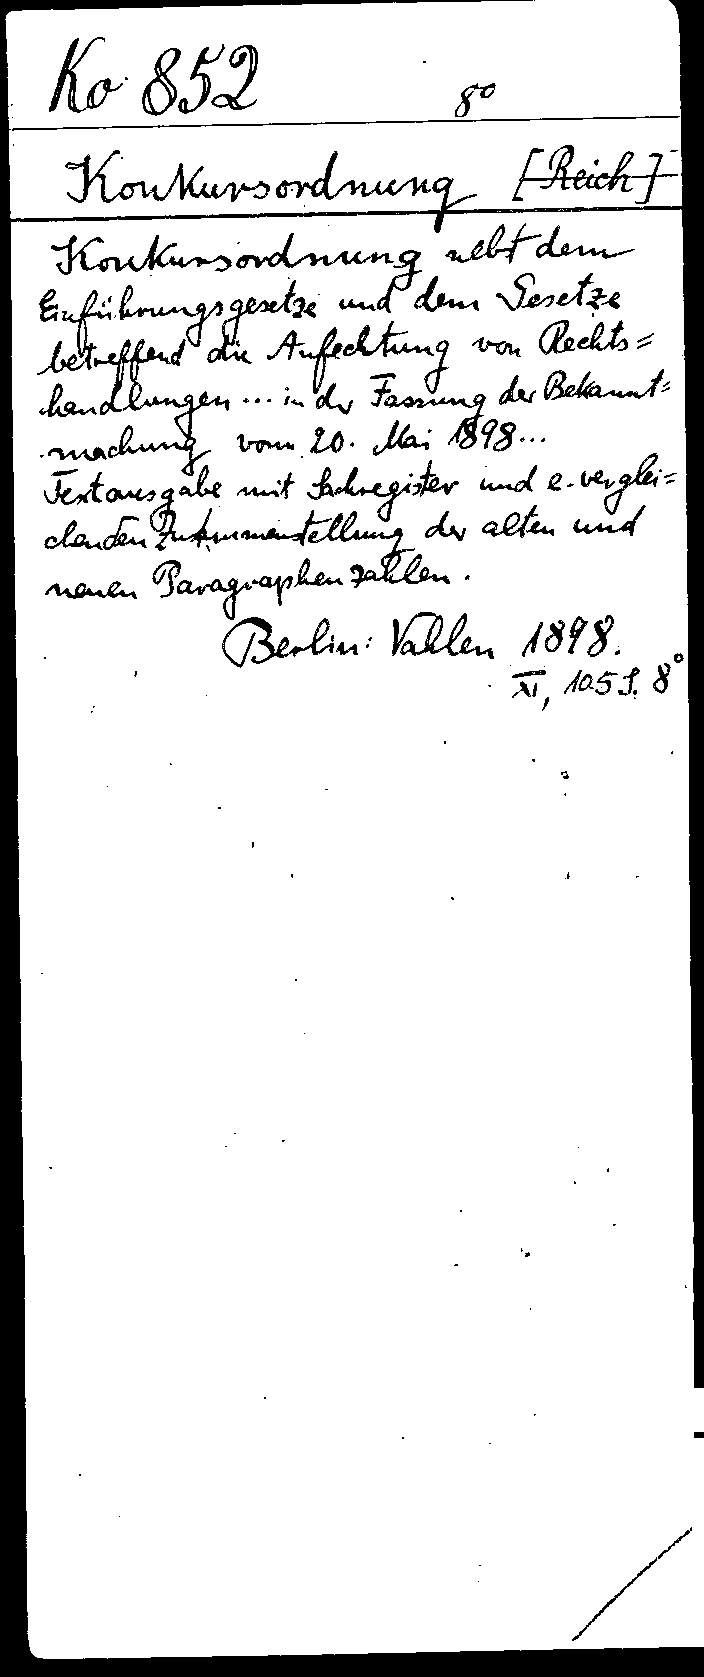 Ko 852 8°
Konkursordnung [Reich]
Konkursordnung nebst dem
Einführungsgesetze und dem Gesetze
betreffend die Anfechtung von Rechts=
handlungen ... in der Fassung der Bekannt=
machung vom 20. Mai 1898...
Textausgabe mit Sachregister und e. verglei=
chenden Zusammenstellung der alten und
neuen Paragraphenzahlen.
Berlin: Vahlen 1898.
XI, 105 S. 8°